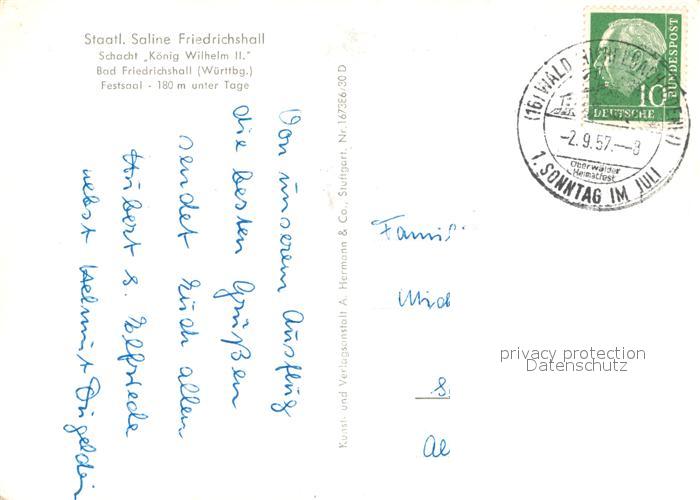 Staatl. Saline Friedrichshall
Schacht „König Wilhelm II."
Bad Friedrichshall (Württbg.)
Festsaal - 180 m unter Tage
Von unserem Ausflug
die besten Grüßen
sendet Euch allen
Hubert u. Elfriede
nebst Helmut
Kunst- und Verlagsanstalt A. Hermann & Co., Stuttgart. Nr. 1673E6/30 D
DEUTSCHE
BUNDESPOST
10
(16) WALD
-2.9.57.--8
Oberwälder
Heimatfest
1. SONNTAG IM JULI
Famil
privacy protection
Datenschutz